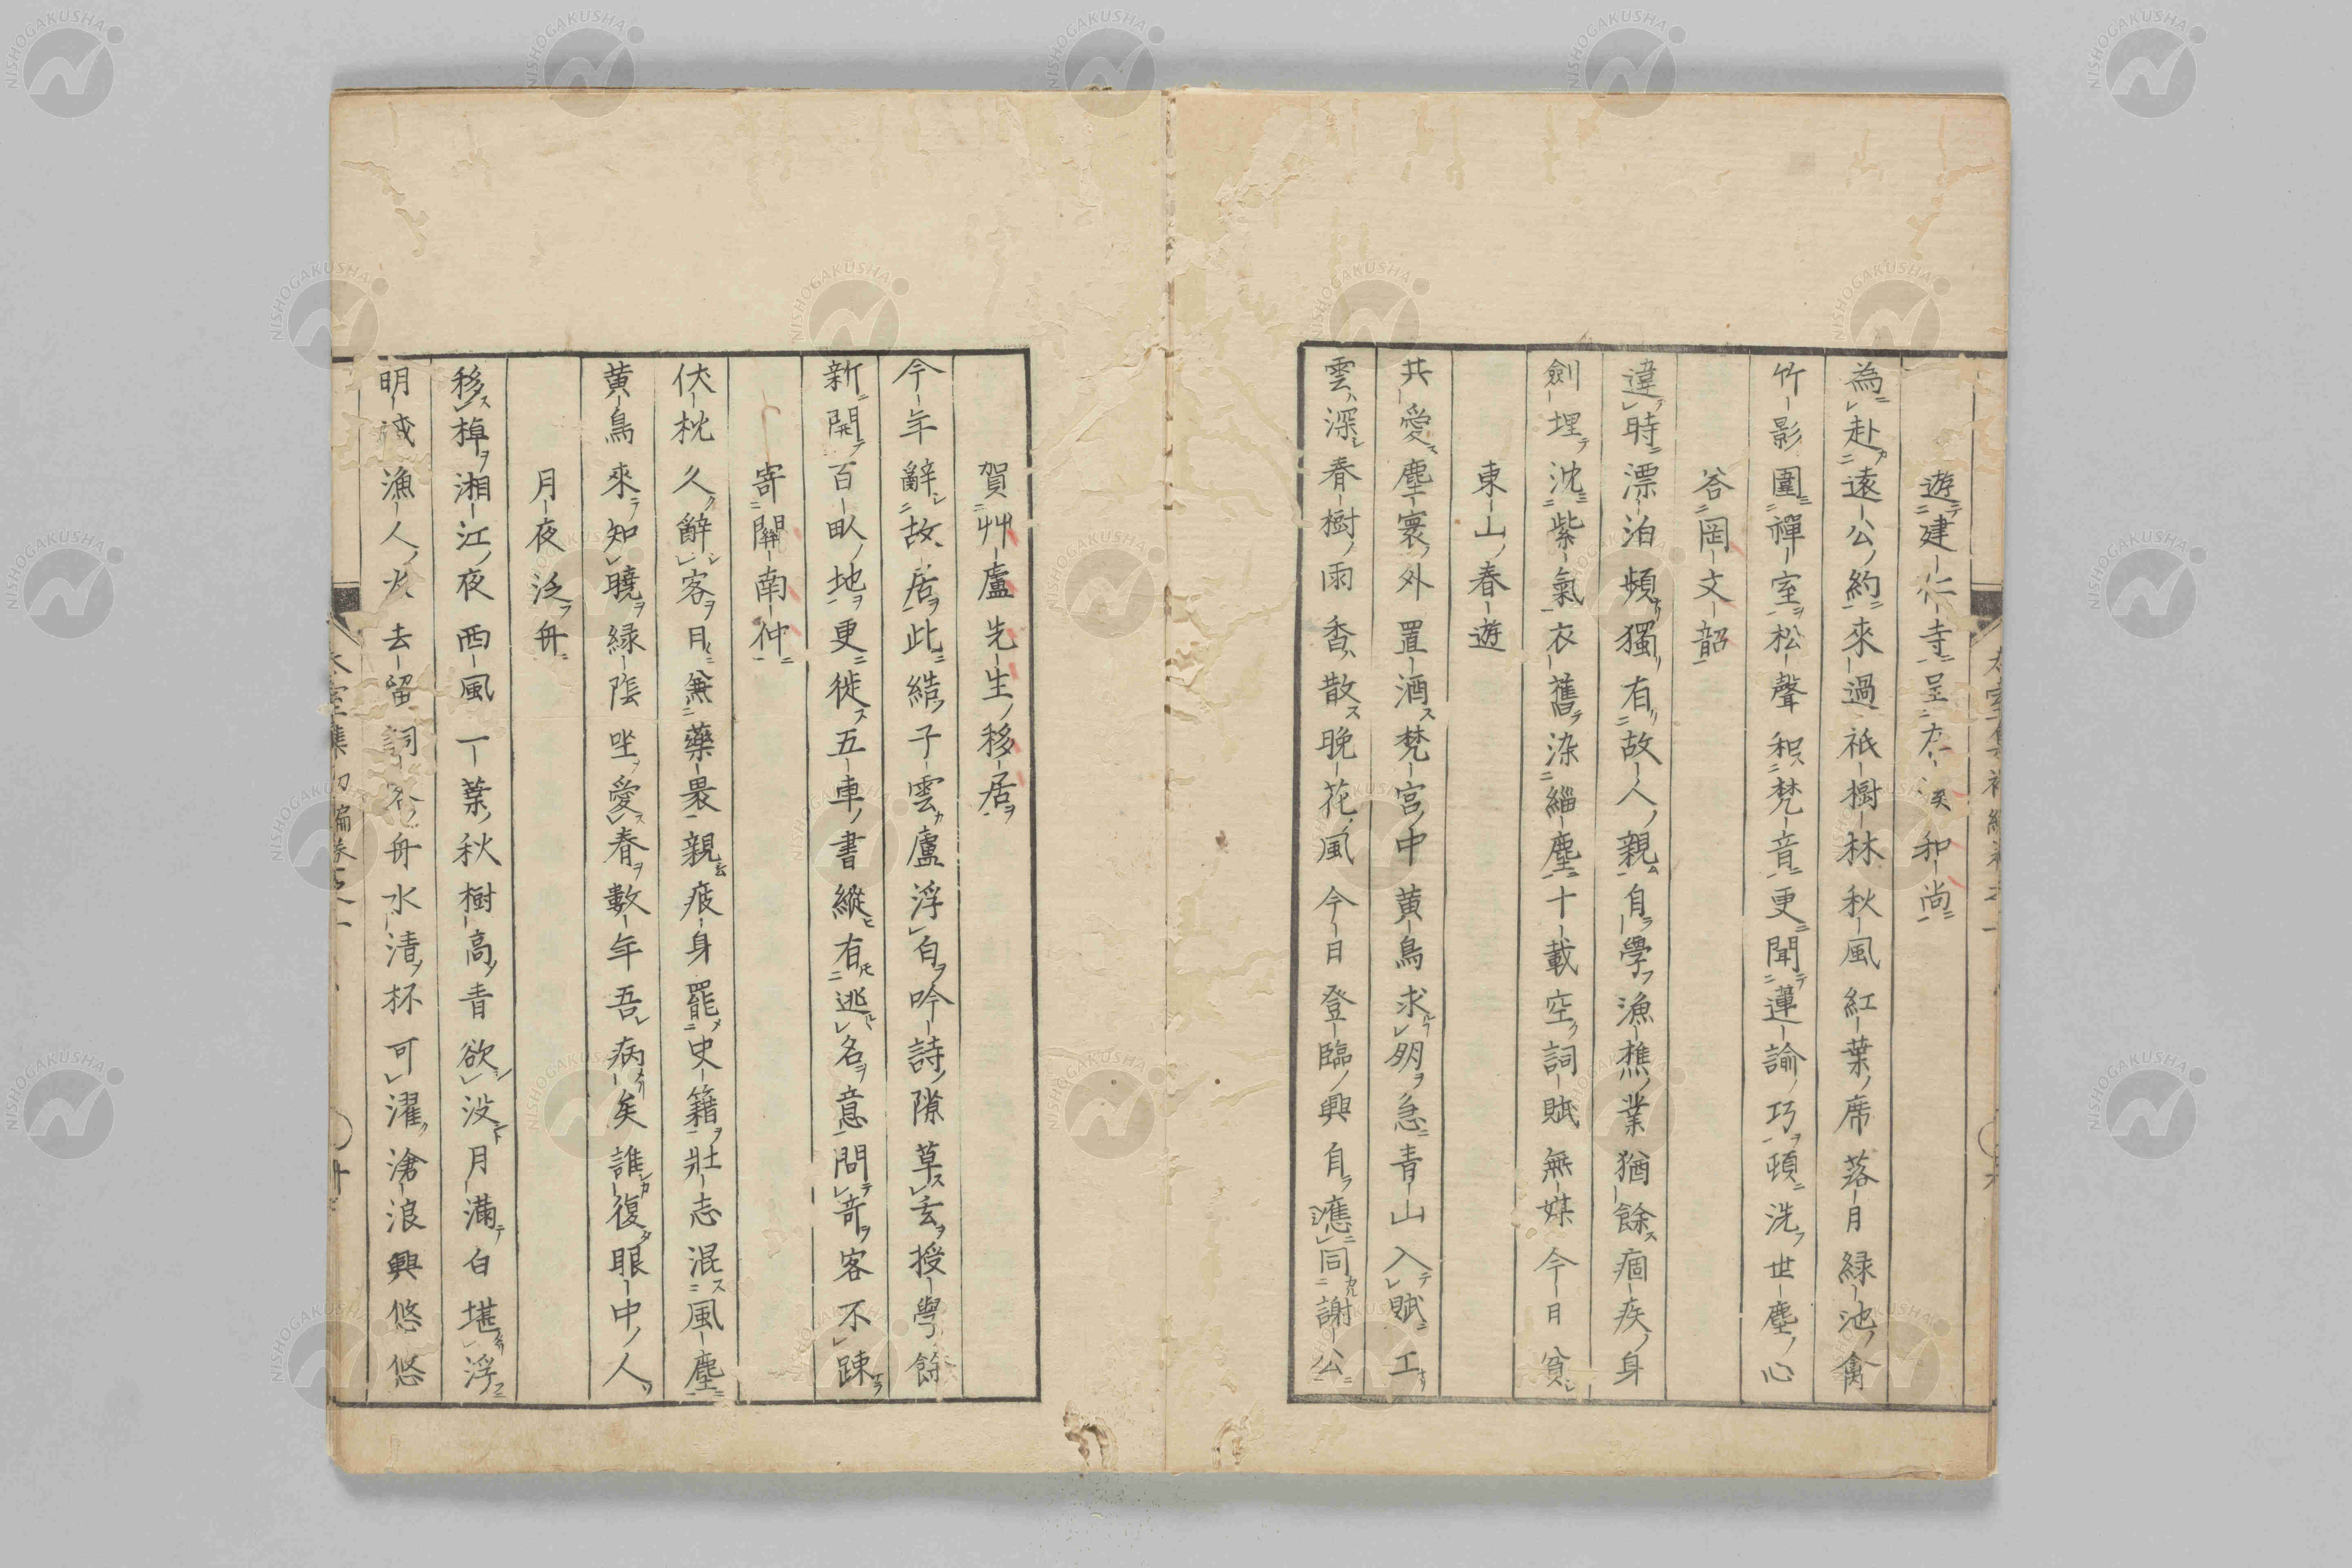 遊建仁寺呈太溪和尚
為赴遠公約來過祇樹林秋風紅葉席落月緑池禽
竹影圍禪室松聲和梵音更聞蓮諭巧頓洗世塵心
答岡文韶
違時漂泊頻獨有故人親自學漁樵業猶餘痼疾身
劍埋沈紫氣衣舊染緇塵十載空詞賦無媒今日貧
東山春遊
共愛塵寰外置酒梵宮中黄鳥求朋急青山入賦工
雲深春樹雨香散晚花風今日登臨興自應同謝公
賀艸盧先生移居
今年辭故居此結子雲盧浮白吟詩隙草玄授學餘
新開百畝地更徙五車書縱有逃名意問奇客不踈
寄關南仲
伏枕久辭客月無藥裹親疲身罷史籍壯志混風塵
黄鳥來知曉緑陰坐愛春數年吾病矣誰復眼中人
月夜泛舟
移棹湘江夜西風一葉秋樹高青欲没月滿白堪浮
明滅漁人火去留詞客舟水清杯可濯滄浪興悠悠
太室集初編卷之一
NISHOGAKUSHA